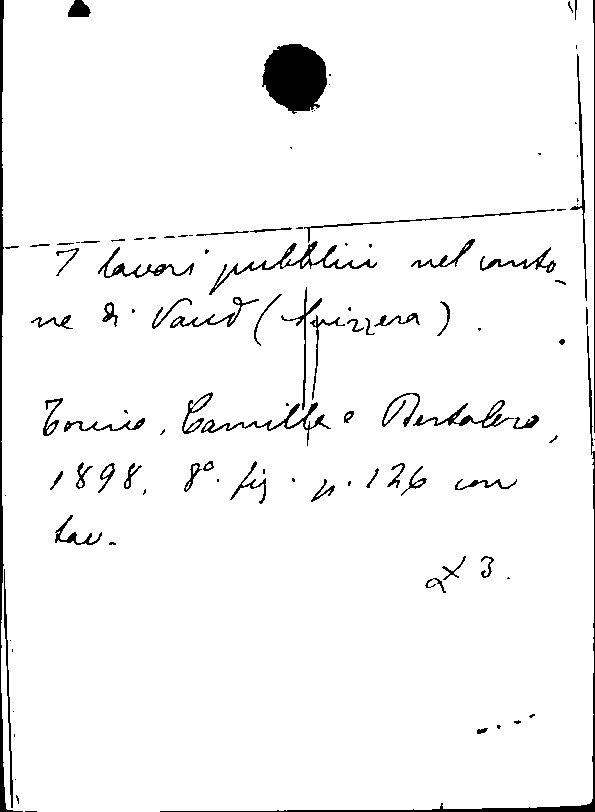 I lavori pubblici nel canto-
ne di Vaud (Svizzera).
Torino, Camilla e Bertolero,
1898, 8º. fig. p. 126 con
tav.
3.